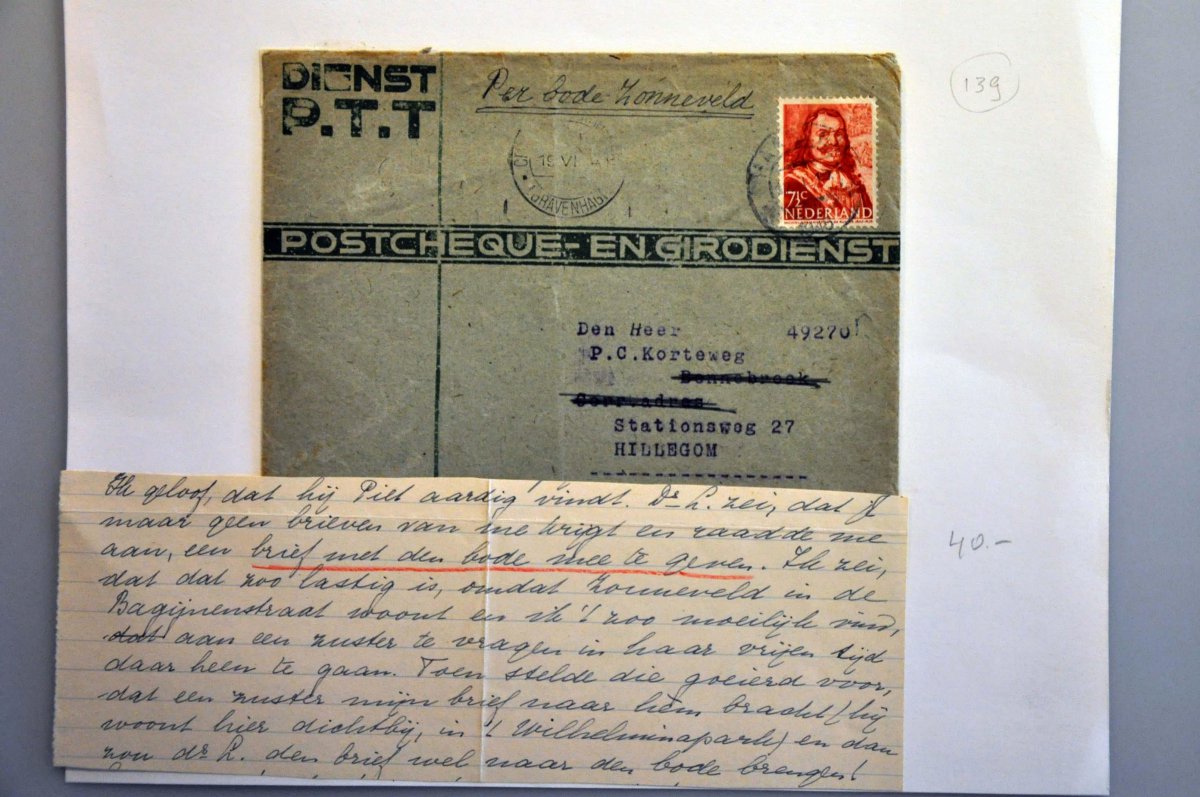 DIENST
P.T.T
Per bode Zonneveld
139
19 VI
'SGRAVENHAGE
7½C
NEDERLAND
POSTCHEQUE- EN GIRODIENST
Den Heer 49270
P.C.Korteweg
Bennebroek,
Corr.adres
Stationsweg 27
HILLEGOM
Ik geloof, dat hij Piet aardig vindt. Dr L. zei, dat je
maar geen brieven van me krijgt en raadde me
aan, een brief met den bode mee te geven. Ik zei,
dat dat zoo lastig is, omdat Zonneveld in de
Bagijnenstraat woont en ik 't zoo moeilijk vind,
dat aan een zuster te vragen in haar vrijen tijd
daar heen te gaan. Toen stelde die goeierd voor,
dat een zuster mijn brief naar hem bracht (hij
woont hier dichtbij, in 't Wilhelminapark) en dan
zou dr L. den brief wel naar den bode brengen!
40.-